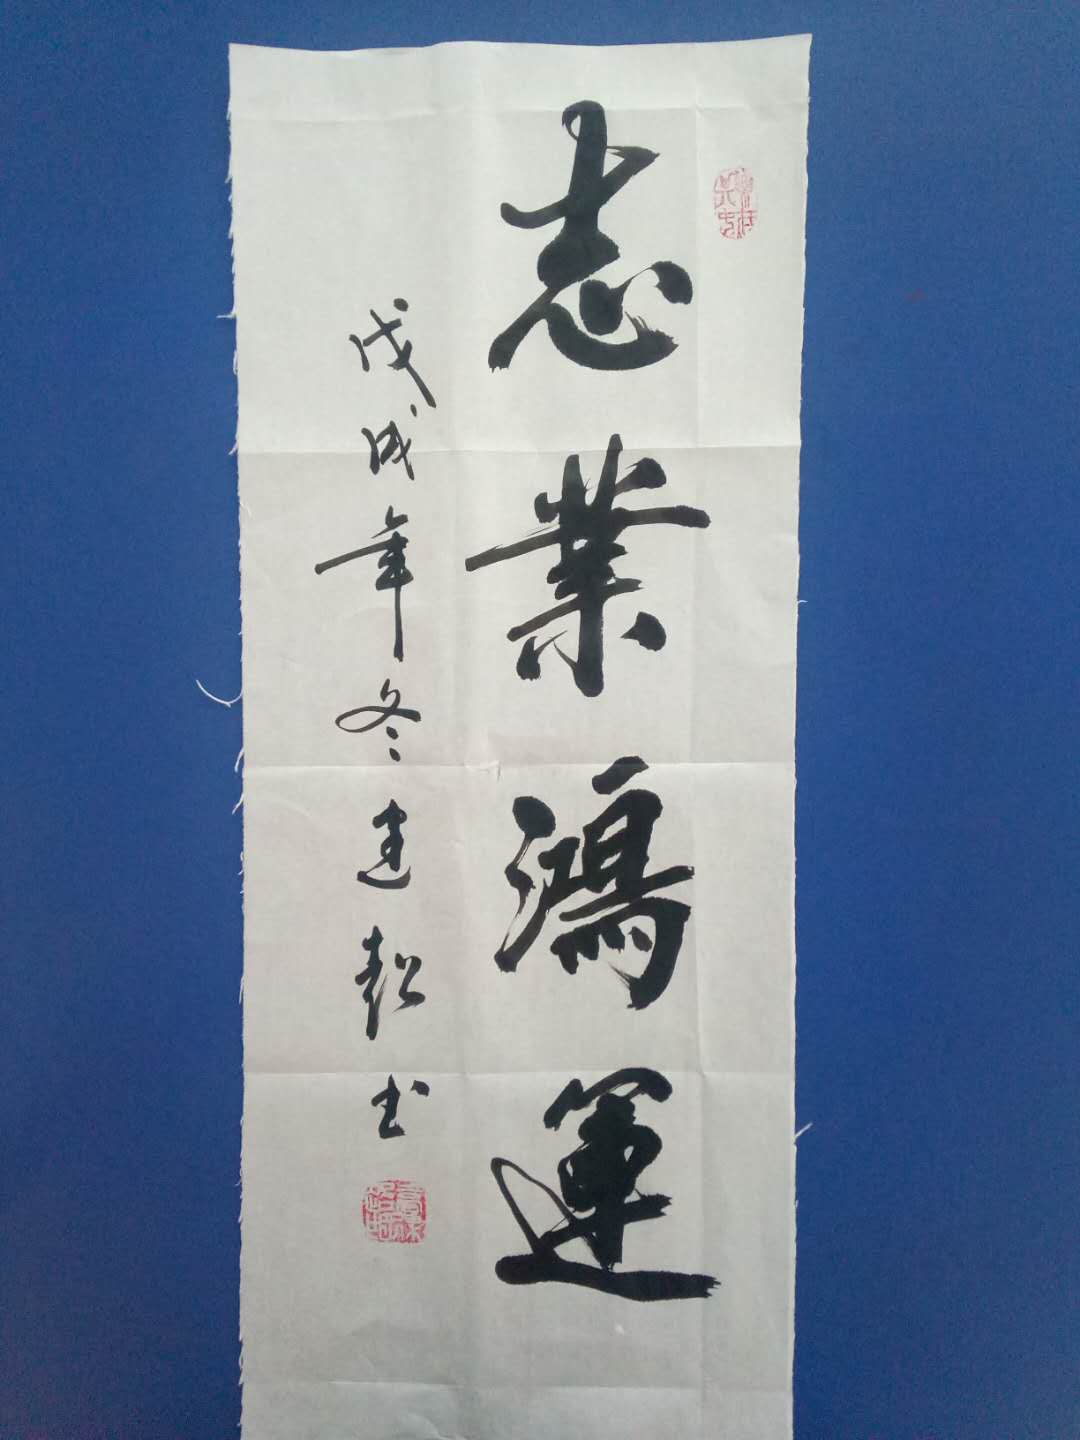 志業鴻運
戊戌年冬建超书